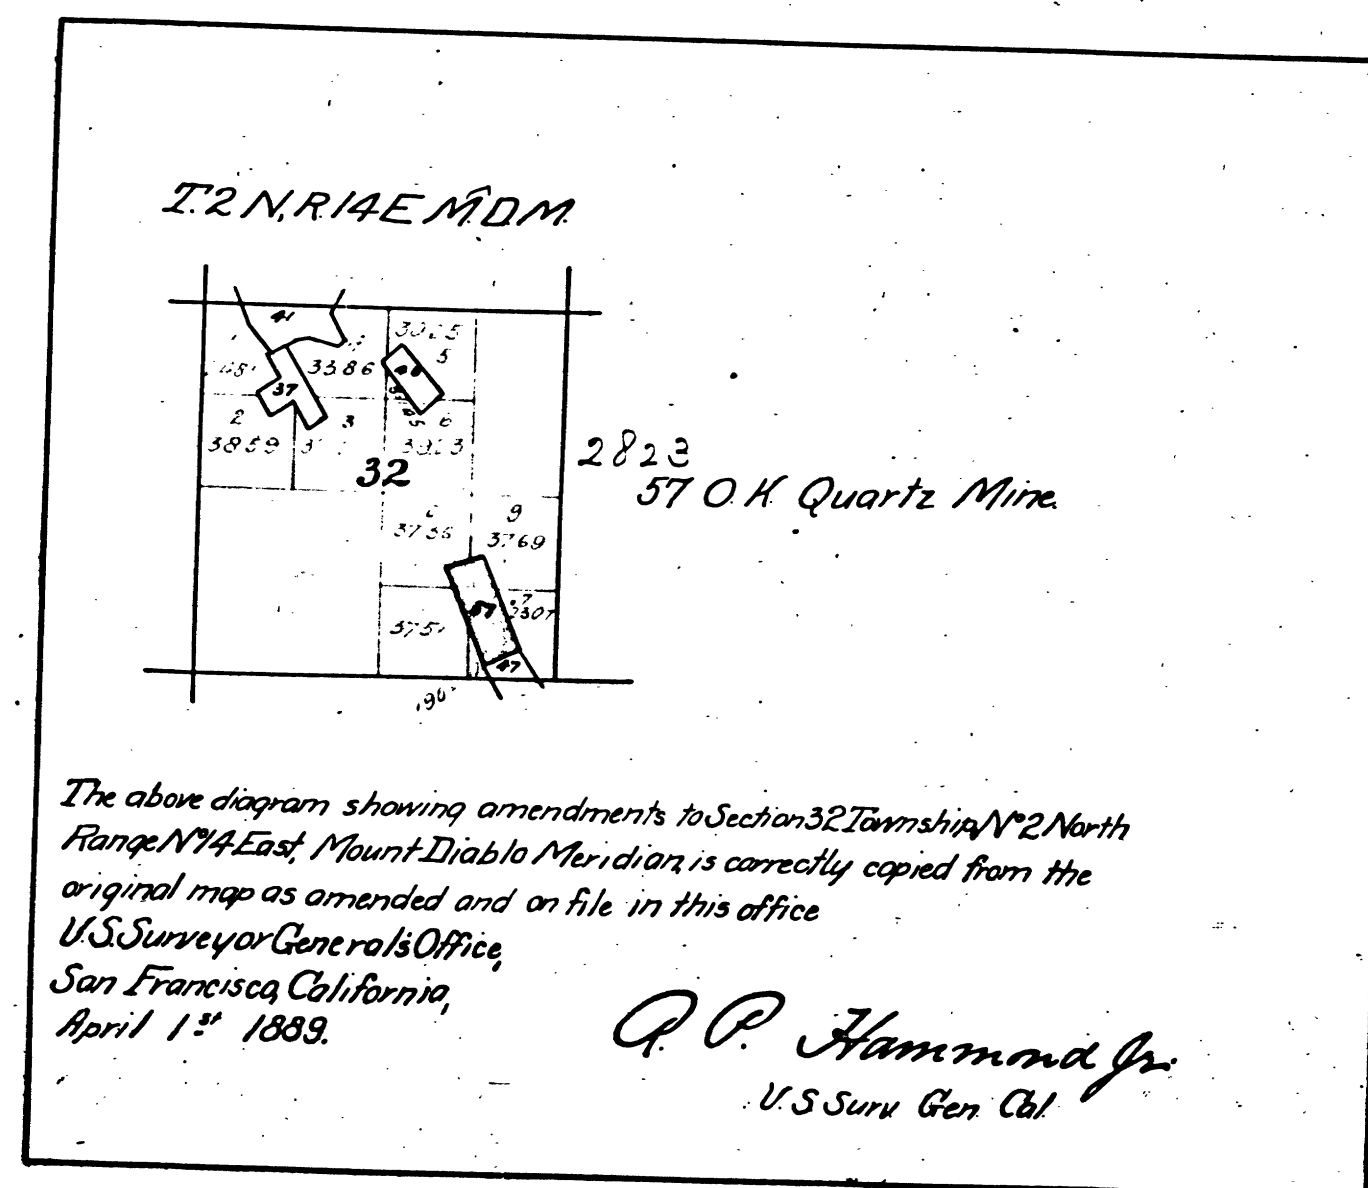 T.2 N, R.14 E M.D.M.
41
5
3386
46
37
2
3
6
3859
32
2823
57 O.K. Quartz Mine.
9
3769
57
7
2307
47
The above diagram showing amendments to Section 32 Township Nº 2 North
Range Nº 14 East, Mount Diablo Meridian, is correctly copied from the
original map as amended and on file in this office
U.S. Surveyor General's Office,
San Francisco, California,
April 1st 1889.
R. P. Hammond Jr.
U.S. Surv. Gen. Cal.